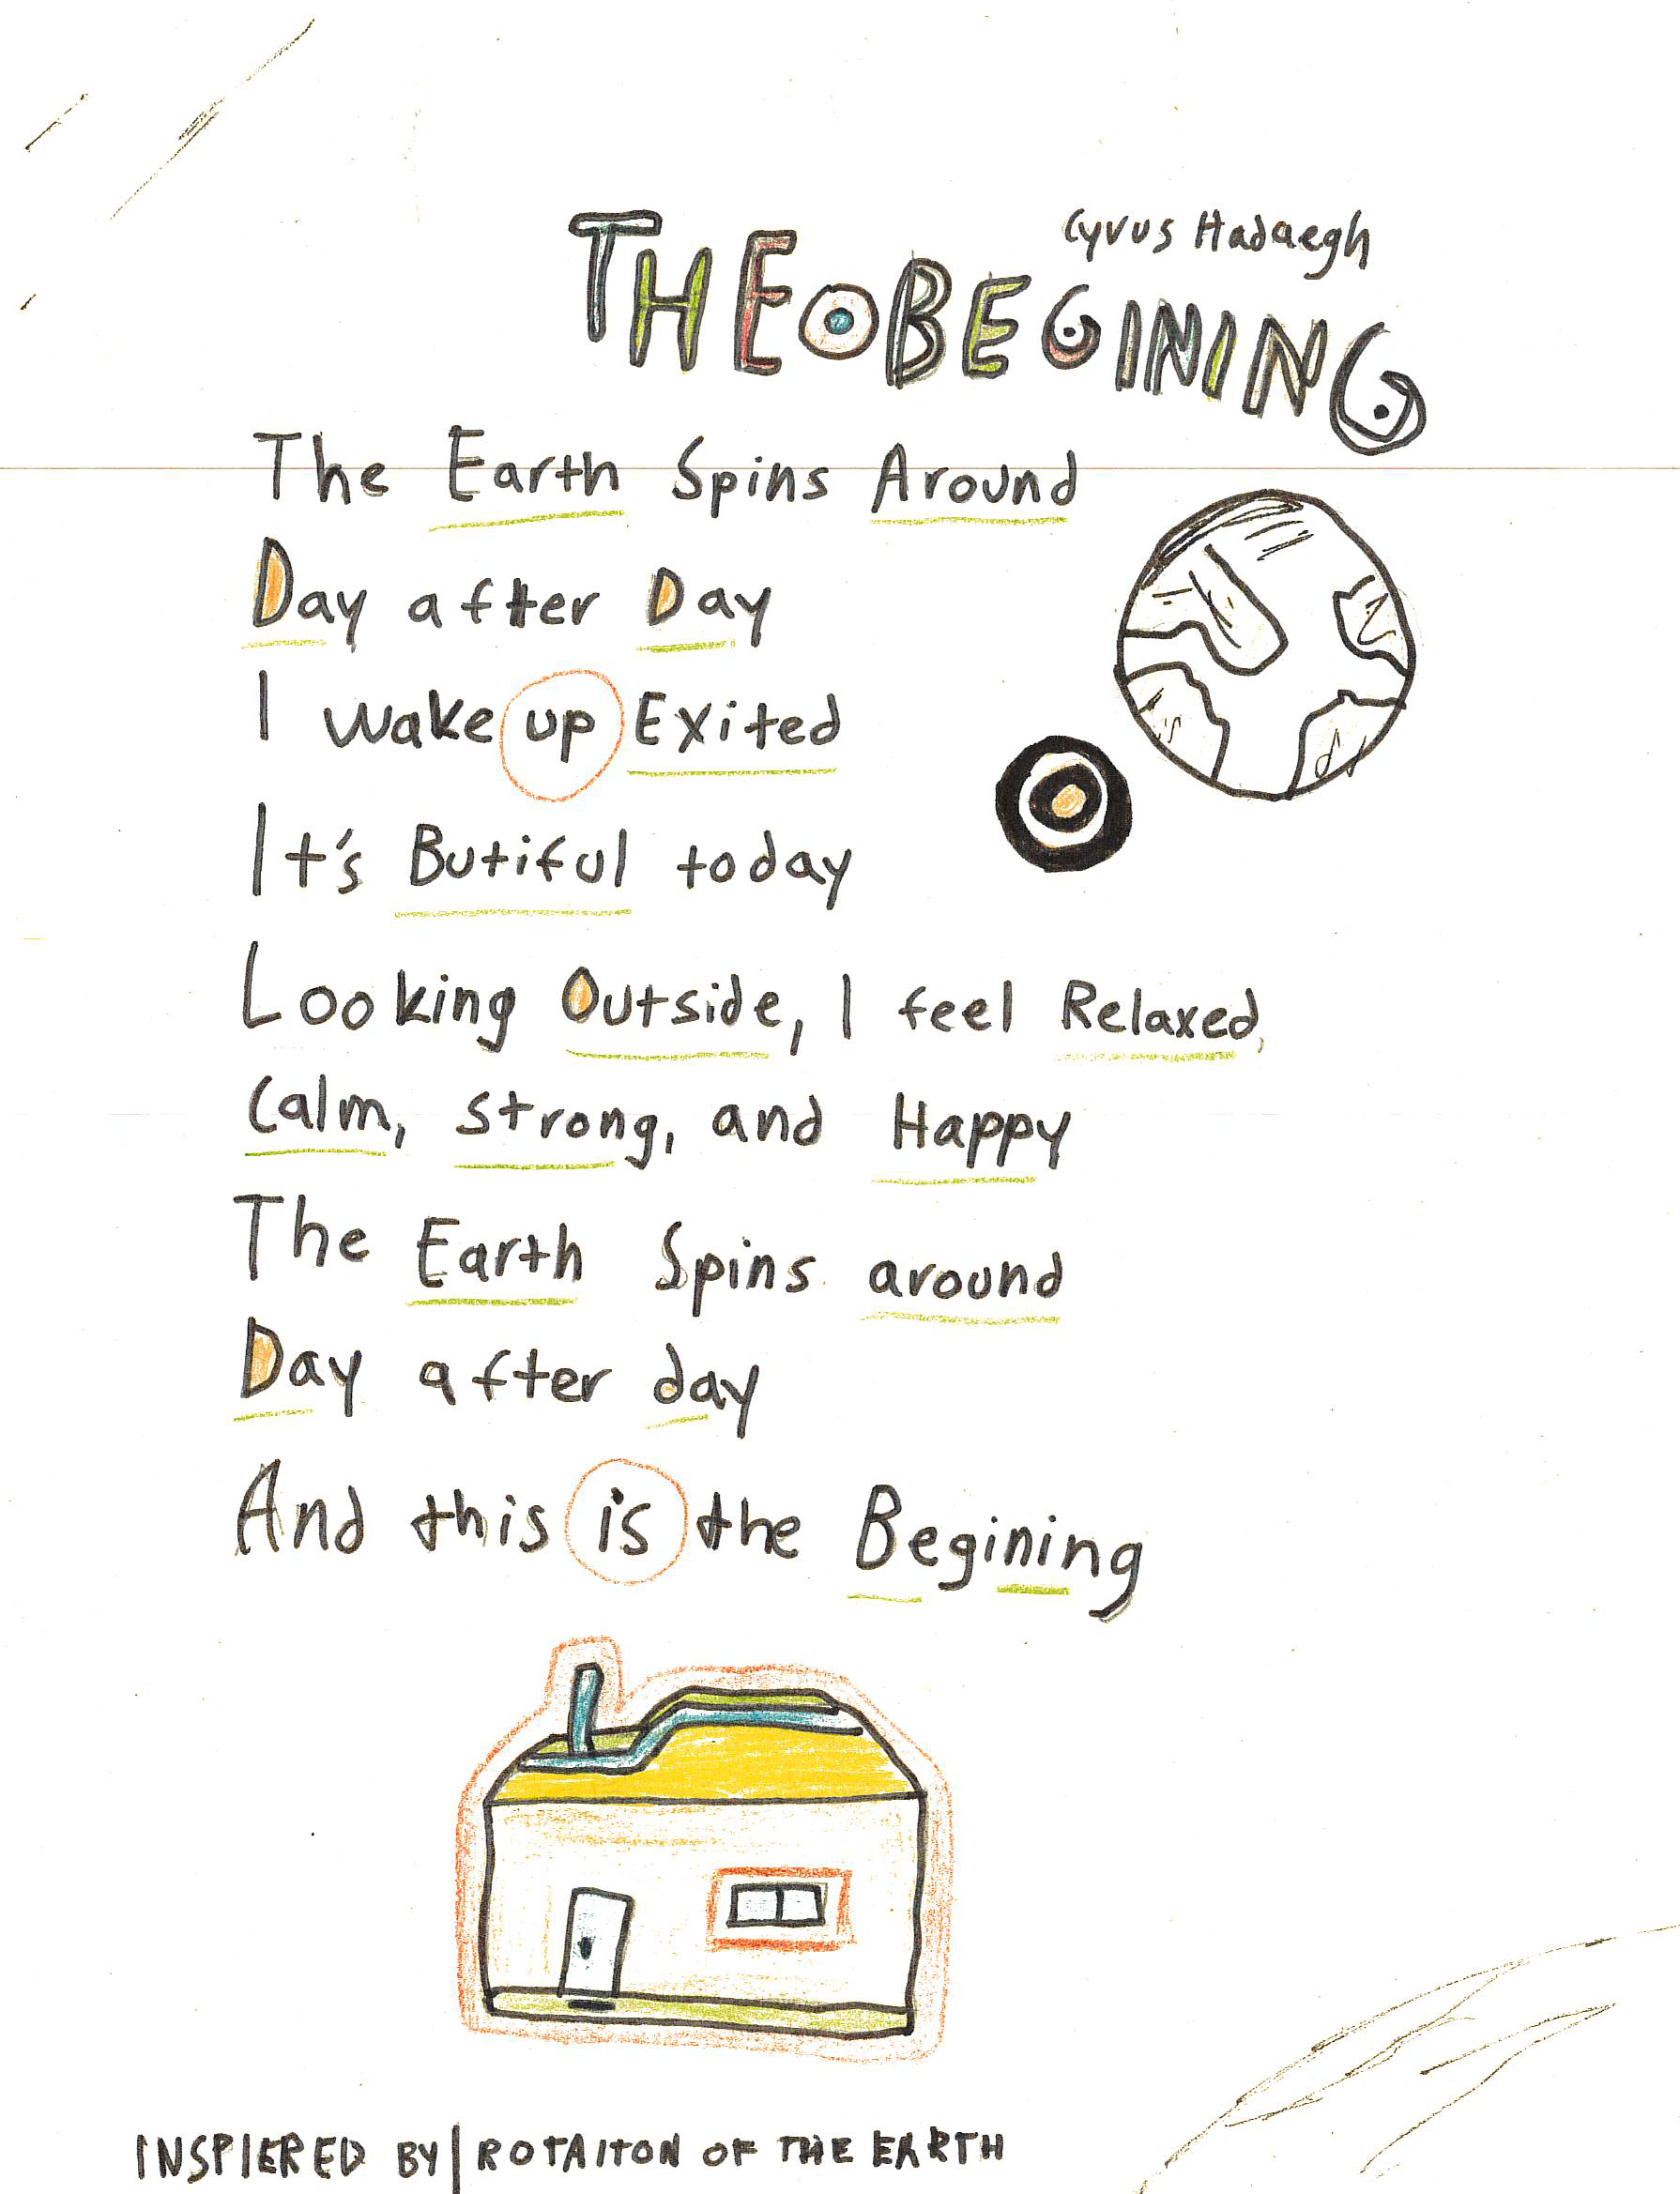 Cyrus Hadaegh
THE BEGINING
The Earth Spins Around
Day after Day
I wake up Exited
It's Butiful today
Looking Outside, I feel Relaxed,
Calm, strong, and Happy
The Earth Spins around
Day after day
And this is the Begining
INSPIERED BY | ROTAITON OF THE EARTH